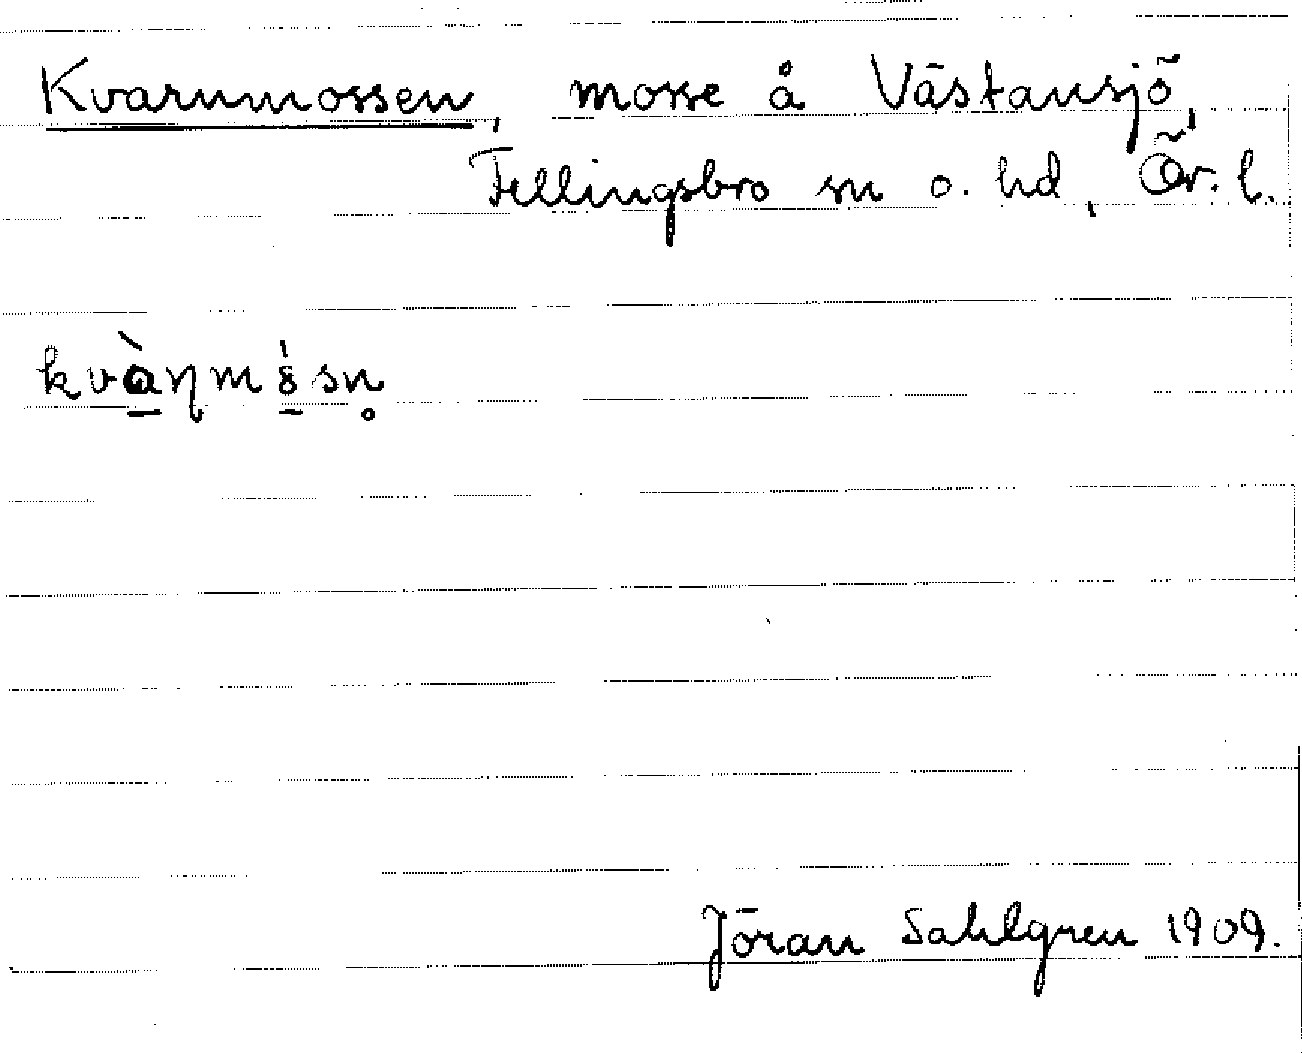 Kvarnmossen, mosse å Västansjö,
Fellingsbro sn o. hd, Ör. l.
kvàɳmósn̥
Jöran Sahlgren 1909.